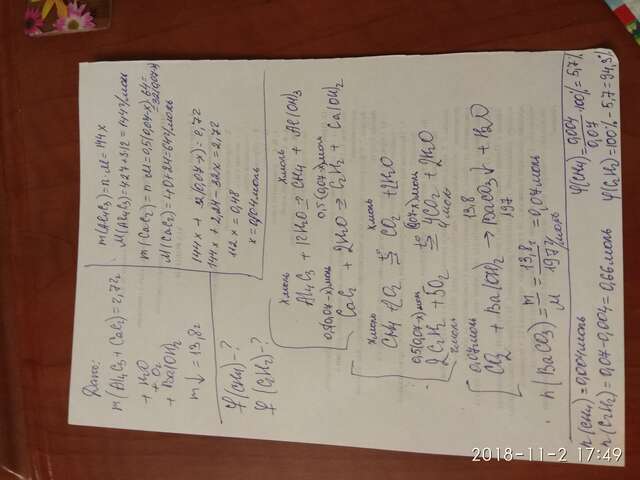 Дано:
m(Al4C3 + CaC2) = 2,72г
+ H2O
+ O2
+ Ba(OH)2
m↓ = 13,8г
φ(CH4) - ?
φ(C2H2) - ?
m(Al4C3) = n·M = 144x
M(Al4C3) = 4·27 + 3·12 = 144г/моль
m(CaC2) = n·M = 0,5(0,04-x)·64 =
= 32(0,04-x)
M(CaC2) = 40 + 24 = 64г/моль
144x + 32(0,04-x) = 2,72
144x + 2,24 - 32x = 2,72
112x = 0,48
x = 0,004моль
xмоль xмоль
Al4C3 + 12H2O → CH4 + Al(OH)3
0,5(0,04-x)моль 0,5(0,04-x)моль
CaC2 + 2H2O → C2H2 + Ca(OH)2
xмоль xмоль
CH4 + 2O2 → CO2 + 2H2O
0,5(0,04-x)моль (0,04-x)моль
2C2H2 + 5O2 → 4CO2 + 2H2O
2моль 4моль
0,07моль 13,8
CO2 + Ba(OH)2 → BaCO3↓ + H2O
197
n(BaCO3) = m/M = 13,8г/197г/моль = 0,07моль
n(CH4) = 0,004моль
n(C2H2) = 0,07-0,004 = 0,66моль
φ(CH4) = 0,004/0,07 · 100% = 5,7%
φ(C2H2) = 100% - 5,7 = 94,3%
2018-11-2 17:49